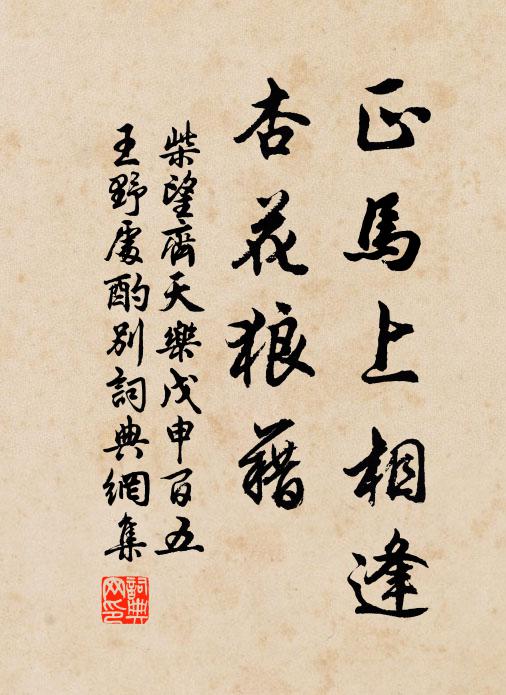 正馬上相逢
杏花狼藉
柴望齊天樂戊申百五
王野處酌別詞典網集
詞典網印